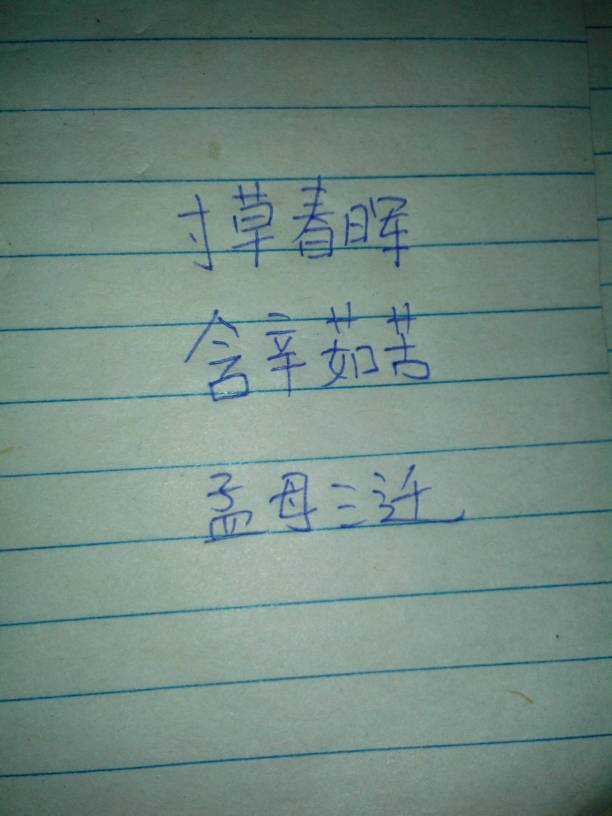 寸草春晖
含辛茹苦
孟母三迁